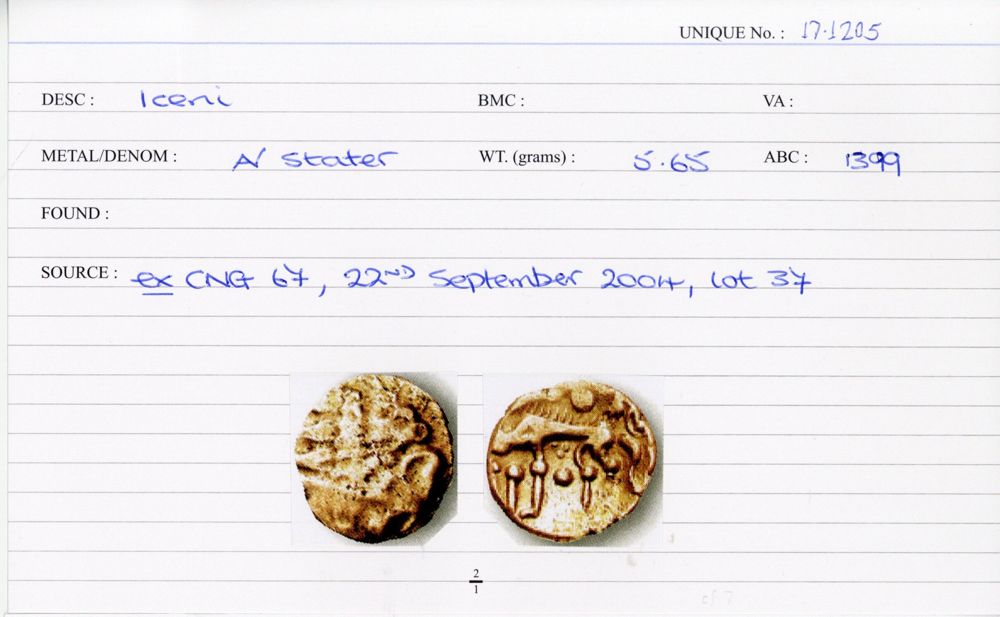 UNIQUE No. : 17.1205
DESC : Iceni BMC : VA :
METAL/DENOM : A/ Stater WT. (grams) : 5.65 ABC : 1399
FOUND :
SOURCE : ex CNG 67, 22ND September 2004, lot 37
2
1